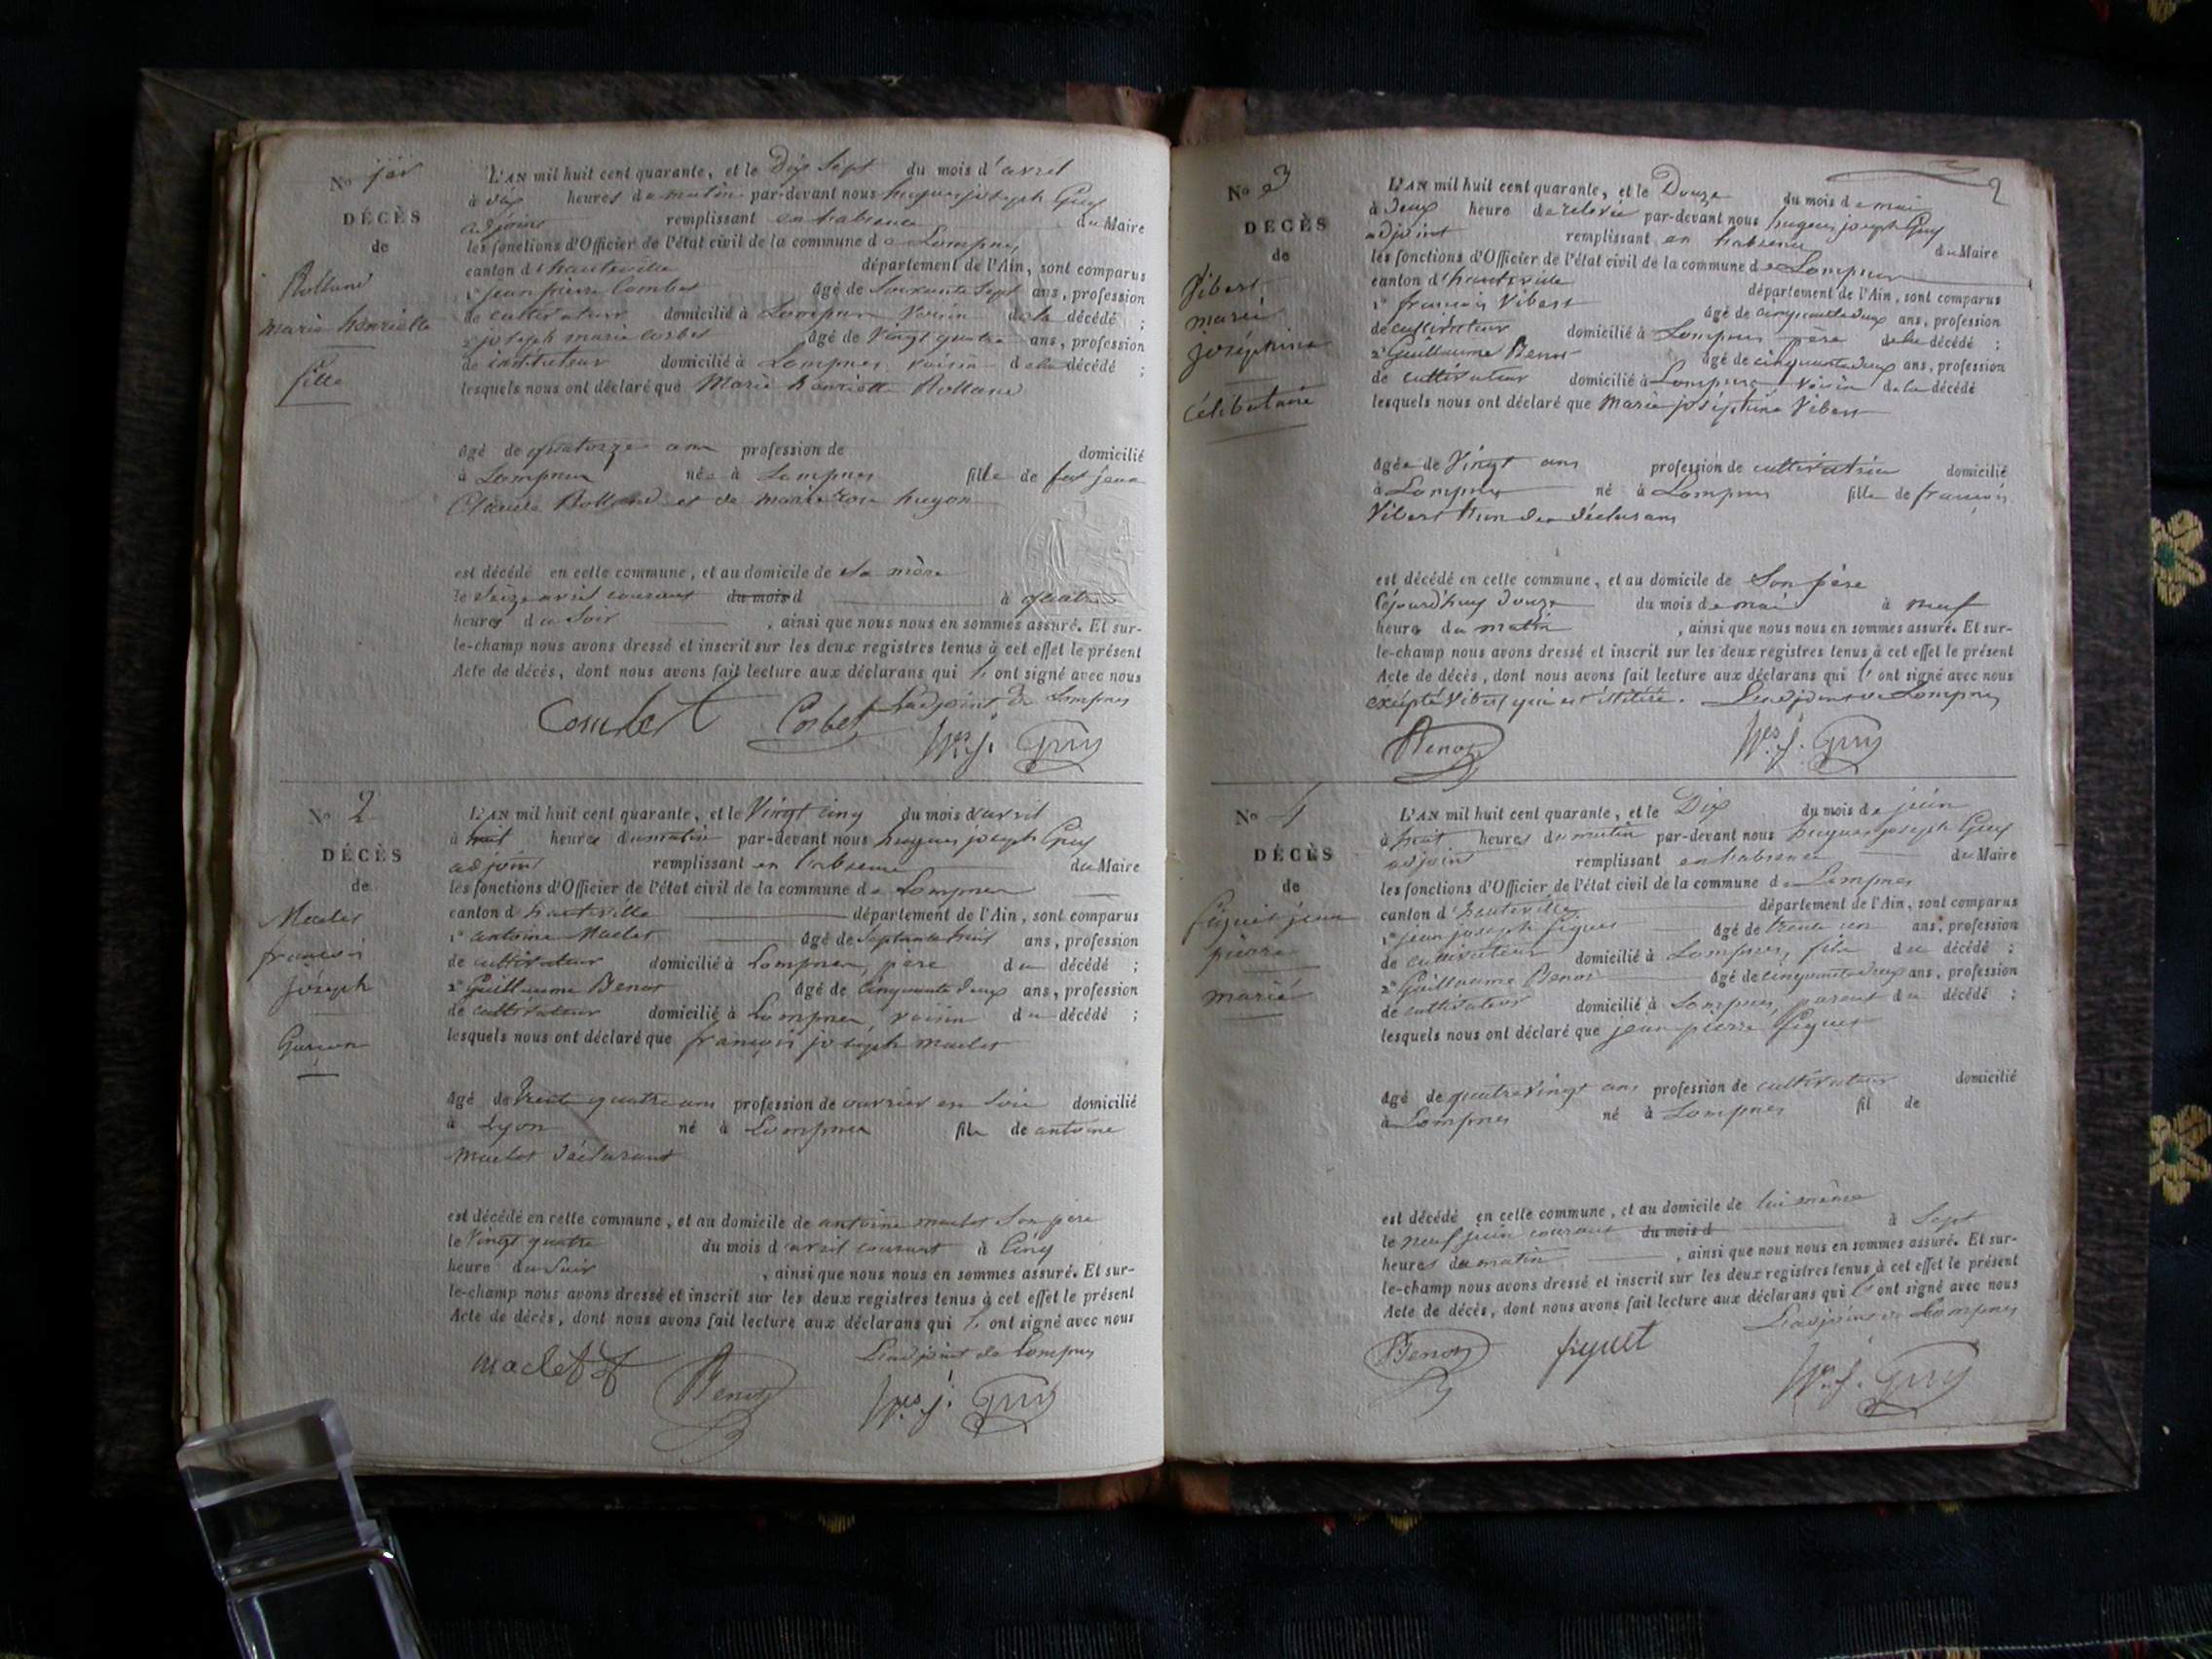 No 1er
DÉCÈS
de
Rolland
marie henriette
fille
L'AN mil huit cent quarante, et le Dix Sept du mois d'avril
à dix heures du matin par-devant nous hugues joseph Guy
adjoint remplissant en l'absence du Maire
les fonctions d'Officier de l'état civil de la commune de Lompnes
canton d'hauteville département de l'Ain, sont comparus
1° jean pierre Combet âgé de Soixante Sept ans, profession
de cultivateur domicilié à Lompnes Voisin de la décédé ;
2° joseph marie Corbet âgé de Vingt quatre ans, profession
de instituteur domicilié à Lompnes, voisin de la décédé ;
lesquels nous ont déclaré que Marie henriette Rolland
âgé de quatorze ans profession de domicilié
à Lompnes née à Lompnes fille de feu jean
Claude Rolland et de marie rose hugon
est décédé en cette commune, et au domicile de sa mère
le Seize avril courant du mois d à quatre
heures du Soir , ainsi que nous nous en sommes assuré. Et sur-
le-champ nous avons dressé et inscrit sur les deux registres tenus à cet effet le présent
Acte de décès, dont nous avons fait lecture aux déclarans qui l'ont signé avec nous
L'adjoint de Lompnes
Combet Corbet hues. j. Guy
No 2
DÉCÈS
de
Maclet
françois
joseph
Garçon
L'AN mil huit cent quarante, et le Vingt cinq du mois d'avril
à huit heures du matin par-devant nous hugues joseph Guy
adjoint remplissant en l'absence du Maire
les fonctions d'Officier de l'état civil de la commune de Lompnes
canton d'hauteville département de l'Ain, sont comparus
1° antoine Maclet âgé de Septante huit ans, profession
de cultivateur domicilié à Lompnes, père du décédé ;
2° Guillaume Benot âgé de Cinquante deux ans, profession
de cultivateur domicilié à Lompnes, voisin du décédé ;
lesquels nous ont déclaré que françois joseph maclet
âgé de Trente quatre ans profession de ouvrier en Soie domicilié
à Lyon né à Lompnes fils de antoine
maclet déclarant
est décédé en cette commune, et au domicile de antoine maclet Son père
le Vingt quatre du mois d'avril courant à Cinq
heure du Soir , ainsi que nous nous en sommes assuré. Et sur-
le-champ nous avons dressé et inscrit sur les deux registres tenus à cet effet le présent
Acte de décès, dont nous avons fait lecture aux déclarans qui l'ont signé avec nous
L'adjoint de Lompnes
maclet Benot hues. j. Guy
2
No 3
DÉCÈS
de
Vibert
marie
joséphine
Célibataire
L'AN mil huit cent quarante, et le Douze du mois de mai
à Deux heure de relevée par-devant nous hugues joseph Guy
adjoint remplissant en l'absence du Maire
les fonctions d'Officier de l'état civil de la commune de Lompnes
canton d'hauteville département de l'Ain, sont comparus
1° françois Vibert âgé de cinquante deux ans, profession
de cultivateur domicilié à Lompnes père de la décédé ;
2° Guillaume Benot âgé de cinquante deux ans, profession
de cultivateur domicilié à Lompnes voisin de la décédé
lesquels nous ont déclaré que Marie joséphine Vibert
âgée de Vingt ans profession de cultivatrice domicilié
à Lompnes né à Lompnes fille de françois
Vibert l'un des déclarans
est décédé en cette commune, et au domicile de Son père
cejourd'huy douze du mois de mai à neuf
heure du matin , ainsi que nous nous en sommes assuré. Et sur-
le-champ nous avons dressé et inscrit sur les deux registres tenus à cet effet le présent
Acte de décès, dont nous avons fait lecture aux déclarans qui l'ont signé avec nous
excepté Vibert qui est illitéré. L'adjoint de Lompnes
Benot hues. j. Guy
No 4
DÉCÈS
de
figuet jean
pierre
marié
L'AN mil huit cent quarante, et le Dix du mois de juin
à huit heures du matin par-devant nous hugues joseph Guy
adjoint remplissant en l'absence du Maire
les fonctions d'Officier de l'état civil de la commune de Lompnes
canton d'hauteville département de l'Ain, sont comparus
1° jean joseph figuet âgé de trente un ans, profession
de cultivateur domicilié à Lompnes, fils du décédé ;
2° Guillaume Benot âgé de cinquante deux ans, profession
de cultivateur domicilié à Lompnes, parent du décédé ;
lesquels nous ont déclaré que jean pierre figuet
âgé de quatre vingt ans profession de cultivateur domicilié
à Lompnes né à Lompnes fil de
est décédé en cette commune, et au domicile de lui même
le neuf juin courant du mois d à Sept
heures du matin , ainsi que nous nous en sommes assuré. Et sur-
le-champ nous avons dressé et inscrit sur les deux registres tenus à cet effet le présent
Acte de décès, dont nous avons fait lecture aux déclarans qui l'ont signé avec nous
L'adjoint de Lompnes
Benot figuet hues. j. Guy